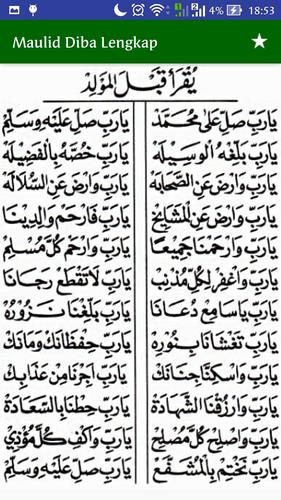 18:53
4%
Maulid Diba Lengkap
يُقْرَأُ قَبْلَ الْمَوْلِدِ
يَارَبِّ صَلِّ عَلَى مُحَمَّدْ يَارَبِّ صَلِّ عَلَيْهِ وَسَلِّمْ
يَارَبِّ بَلِّغْهُ الْوَسِيلَهْ يَارَبِّ خُصَّهُ بِالْفَضِيلَهْ
يَارَبِّ وَارْضَ عَنِ الصَّحَابَهْ يَارَبِّ وَارْضَ عَنِ السُّلَالَهْ
يَارَبِّ وَارْضَ عَنِ الْمَشَايِخْ يَارَبِّ فَارْحَمْ وَالِدِينَا
يَارَبِّ وَارْحَمْنَا جَمِيعًا يَارَبِّ وَارْحَمْ كُلَّ مُسْلِمْ
يَارَبِّ وَاغْفِرْ لِكُلِّ مُذْنِبْ يَارَبِّ لَاتَقْطَعْ رَجَانَا
يَارَبِّ يَاسَامِعْ دُعَانَا يَارَبِّ بَلِّغْنَا نَزُورُهْ
يَارَبِّ تَغْشَانَا بِنُورِهْ يَارَبِّ حِفْظَانَكْ وَامَانَكْ
يَارَبِّ وَاسْكِنَّا جِنَانَكْ يَارَبِّ اَجِرْنَا مِنْ عَذَابِكْ
يَارَبِّ وَارْزُقْنَا الشَّهَادَةْ يَارَبِّ حِطْنَا بِالسَّعَادَةْ
يَارَبِّ وَاصْلِحْ كُلَّ مُصْلِحْ يَارَبِّ وَاكْفِ كُلَّ مُؤْذِي
يَارَبِّ نَخْتِمْ بِالْمُشَفَّعْ يَارَبِّ صَلِّ عَلَيْهِ وَسَلِّمْ